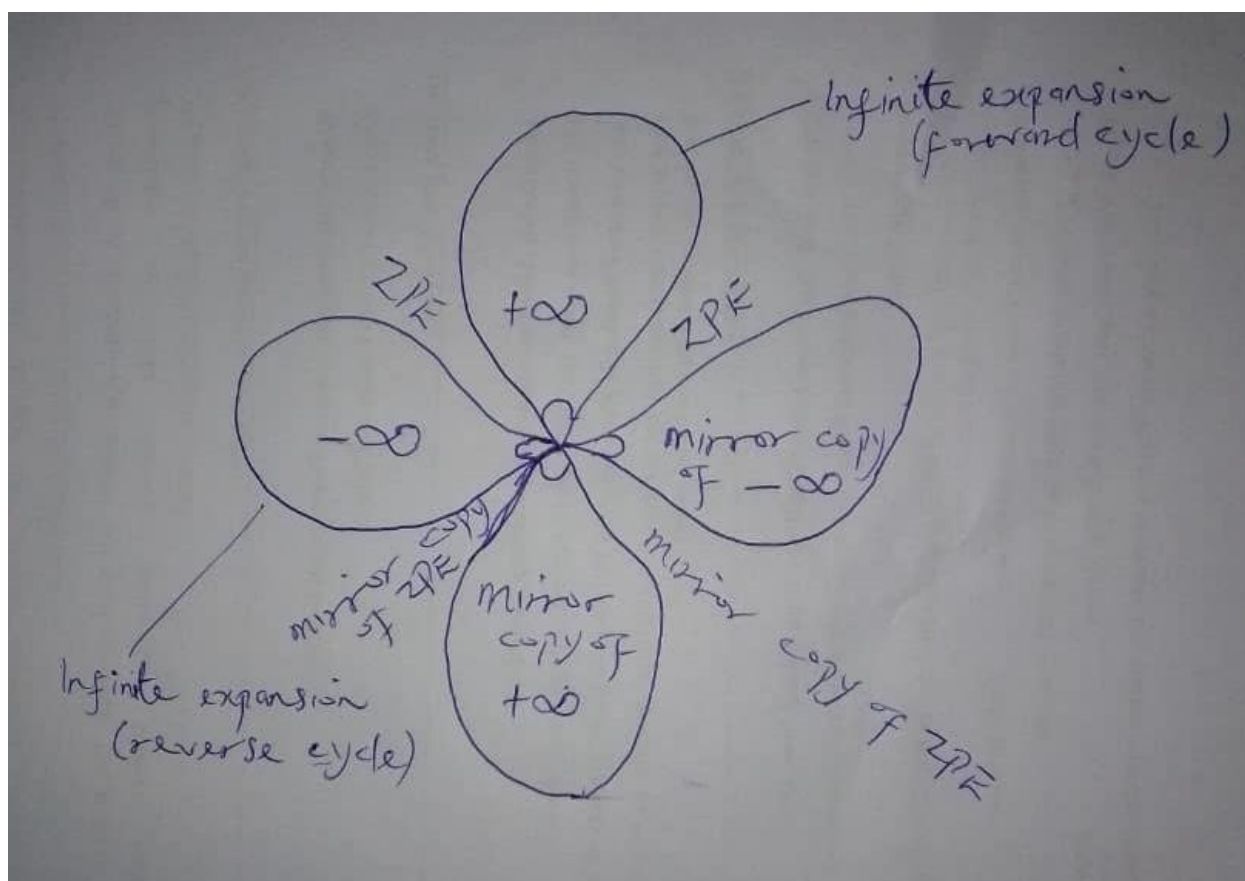 Infinite expansion
(forward cycle)
ZPE
ZPE
+∞
-∞
mirror copy
of -∞
mirror copy
of ZPE
mirror
copy of
+∞
mirror copy of ZPE
Infinite expansion
(reverse cycle)